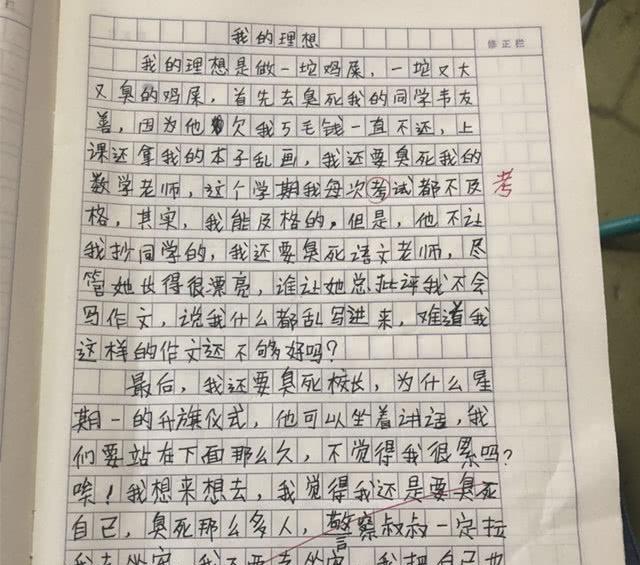 我的理想
修正栏
我的理想是做一坨鸡屎，一坨又大
又臭的鸡屎，首先去臭死我的同学韦友
善，因为他欠我5毛钱一直不还，上
课还拿我的本子乱画，我还要臭死我的
数学老师，这个学期我每次考试都不及
考
格，其实，我能及格的，但是，他不让
我抄同学的，我还要臭死语文老师，尽
管她长得很漂亮，谁让她总批评我不会
写作文，说我什么都乱写进来，难道我
这样的作文还不够好吗？
最后，我还要臭死校长，为什么星
期一的升旗仪式，他可以坐着讲话，我
们要站在下面那么久，不觉得我很累吗？
唉！我想来想去，我觉得我还是要臭死
自己，臭死那么多人，警察叔叔一定拉
我去坐牢，我不要去坐牢，我把自己也